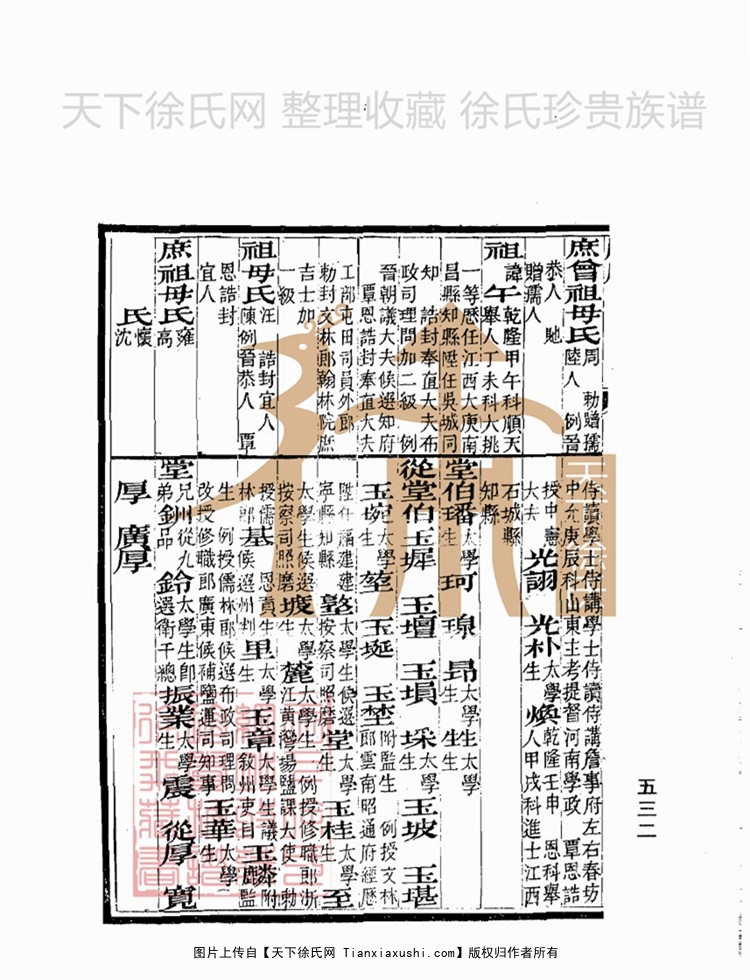 天下徐氏网 整理收藏 徐氏珍贵族谱
庶曾祖母氏周 勅贈孺
陸人 例晉
恭人 馳
贈孺人
祖諱午乾隆甲午科順天
舉人丁未科大挑
一等歷任江西大庾南
昌縣知縣陞任吳城同
知 誥封奉直大夫布
政司理問加二級 例
晉朝議大夫候選知府
覃恩誥封奉直大夫
工部屯田司員外郎
勅封文林郎翰林院庶
吉士加
一級
祖母氏汪 誥封宜人
陳例晉恭人 覃
恩誥封
宜人
庶祖母氏雍
高
氏懷
沈
侍讀學士侍講學士侍讀侍講詹事府左右春坊
中允庚辰科山東主考提督河南學政 覃恩誥
授中憲
大夫 光詡 光朴太學生 煥乾隆壬申 恩科舉
人甲戌科進士江西
石城縣
知縣
堂伯璠太學生 珂 琅 昂太學生 生太學生
從堂伯玉墀 玉壇 玉塤 埰太學生 玉坡 玉堪
玉琬太學生 堃 玉埏 玉埜附監生 例授文林
郎雲南昭通府經歷
陞任福建建
寧縣知縣 墪太學生候選
按察司照磨 堂太學生 玉桂太學生 至
太學生候選
按察司照磨 坡太學生 麓太學生 例授修職郎浙
江黃灣場鹽課大使 勅
授儒
林郎 基 恩貢生
候選州判 里太學生 玉章太學生議
敘州吏目 玉麟附
監
生 例授儒林郎候選布政司理問
改授修職郎廣東候補鹽運司知事 玉華太學生
堂兄弟 釧州從九品 鈴太學生即
選衛千總 振業太學生 震 從厚 寬
厚 廣厚
五三二
天下徐氏
图片上传自【天下徐氏网 Tianxiaxushi.com】版权归作者所有